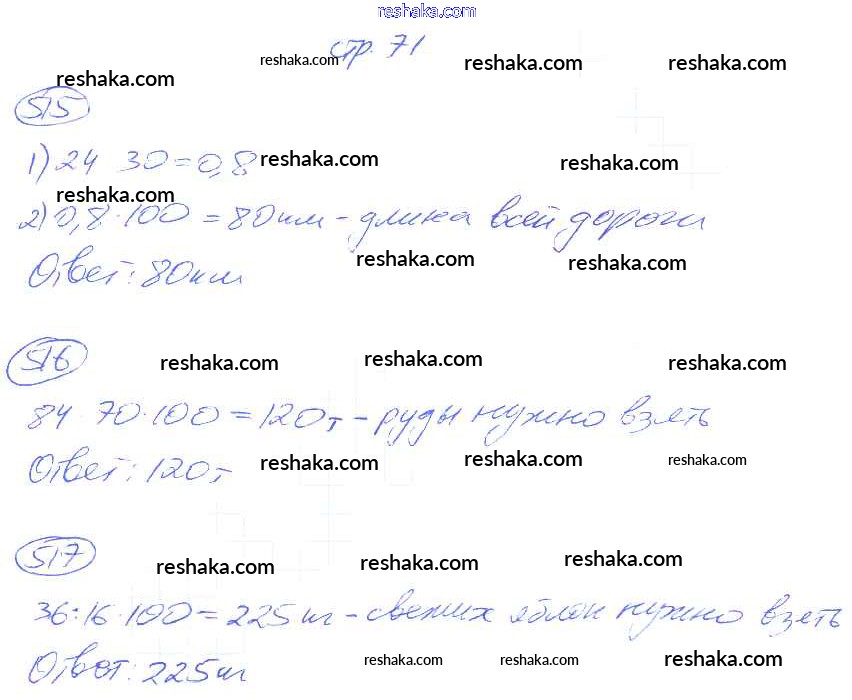 reshaka.com
стр. 71
reshaka.com reshaka.com reshaka.com reshaka.com
515
1) 24 30 = 0,8 reshaka.com reshaka.com
reshaka.com
2) 0,8 · 100 = 80 км - длина всей дороги
Ответ: 80 км reshaka.com reshaka.com
516 reshaka.com reshaka.com reshaka.com
84 · 70 · 100 = 120 т - руды нужно взять
Ответ: 120 т reshaka.com reshaka.com reshaka.com
517 reshaka.com reshaka.com reshaka.com
36 : 16 · 100 = 225 кг - свежих яблок нужно взять
Ответ: 225 кг reshaka.com reshaka.com reshaka.com